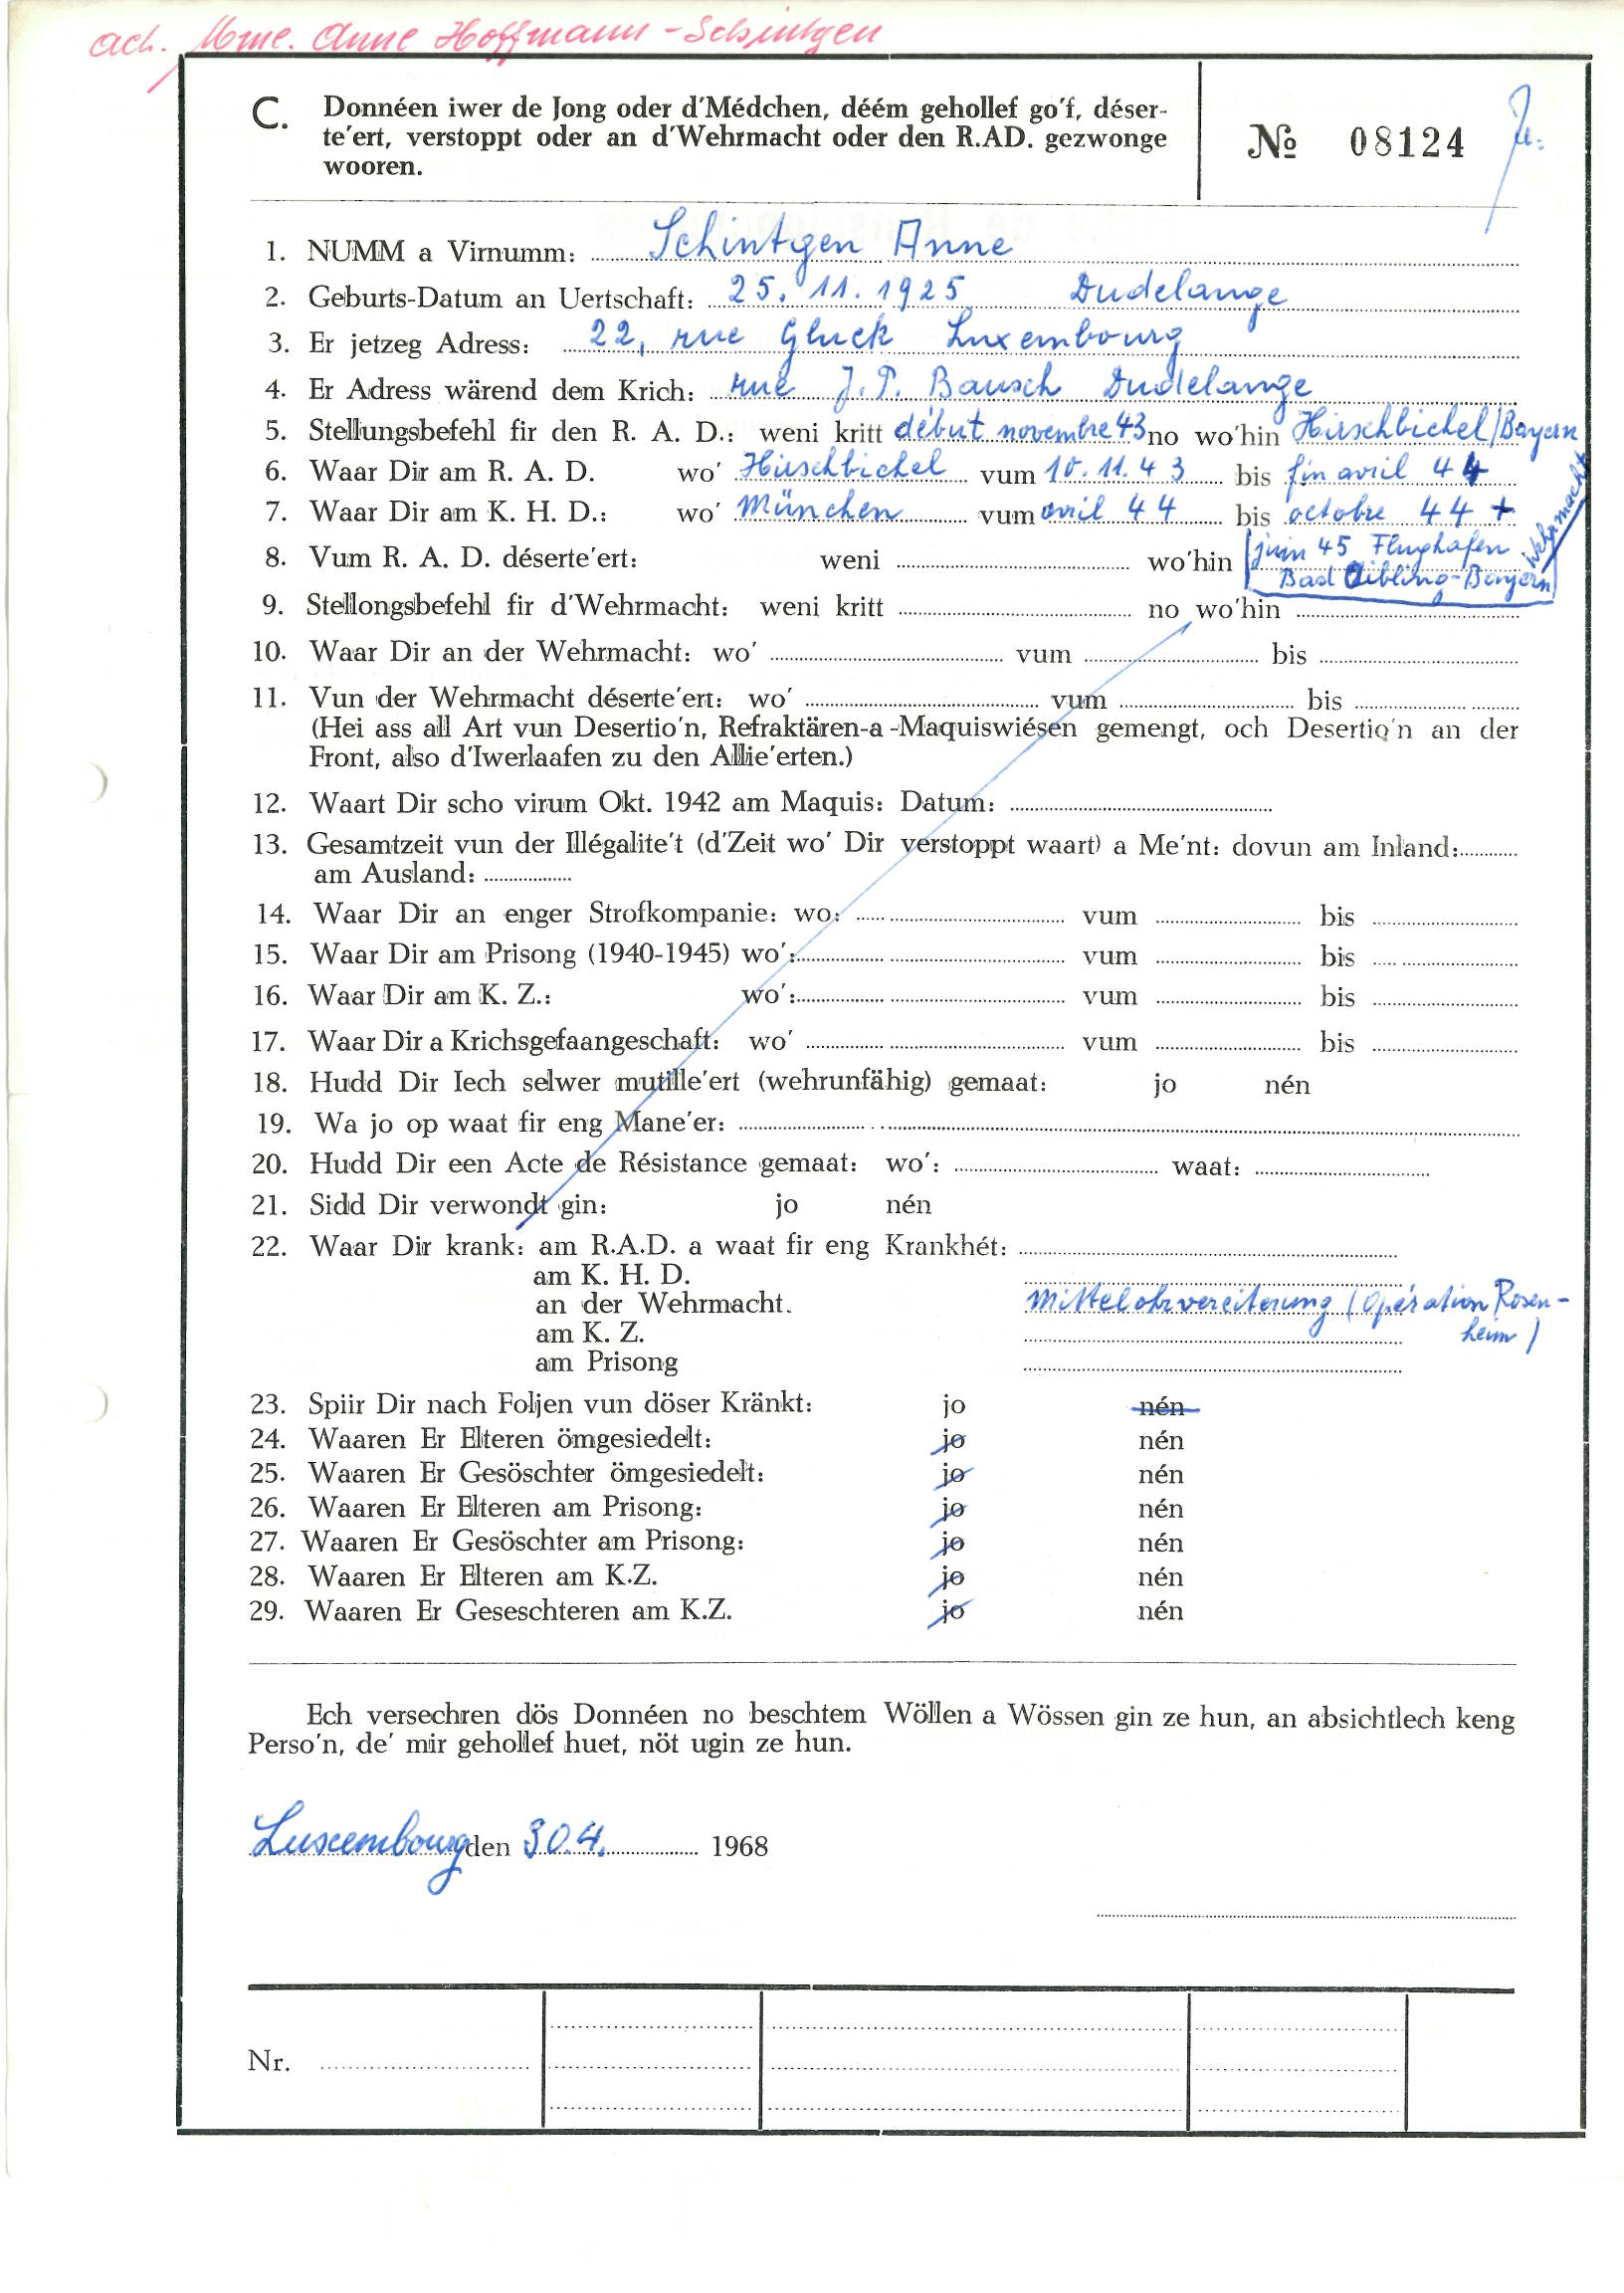 ach. Mme. Anne Hoffmann-Schintgen
C. Donnéen iwer de Jong oder d'Médchen, déém gehollef go'f, déser-
te'ert, verstoppt oder an d'Wehrmacht oder den R.AD. gezwonge
wooren.
№ 08124
1. NUMM a Virnumm: Schintgen Anne
2. Geburts-Datum an Uertschaft: 25. 11. 1925 Dudelange
3. Er jetzeg Adress: 22, rue Gluck Luxembourg
4. Er Adress wärend dem Krich: rue J. P. Bausch Dudelange
5. Stellungsbefehl fir den R. A. D.: weni kritt début novembre 43 no wo'hin Hirschbichel/Bayern
6. Waar Dir am R. A. D. wo' Hirschbichel vum 10. 11. 43 bis fin avril 44
7. Waar Dir am K. H. D.: wo' München vum avril 44 bis octobre 44 +
8. Vum R. A. D. déserte'ert: weni wo'hin juin 45 Flughafen
Bad Aibling-Bayern
Wehrmacht
9. Stellongsbefehl fir d'Wehrmacht: weni kritt no wo'hin
10. Waar Dir an der Wehrmacht: wo' vum bis
11. Vun der Wehrmacht déserte'ert: wo' vum bis
(Hei ass all Art vun Desertio'n, Refraktären-a -Maquiswiésen gemengt, och Desertio'n an der
Front, also d'Iwerlaafen zu den Allie'erten.)
12. Waart Dir scho virum Okt. 1942 am Maquis: Datum:
13. Gesamtzeit vun der Illégalite't (d'Zeit wo' Dir verstoppt waart) a Me'nt: dovun am Inland:
am Ausland:
14. Waar Dir an enger Strofkompanie: wo: vum bis
15. Waar Dir am Prisong (1940-1945) wo': vum bis
16. Waar Dir am K. Z.: wo': vum bis
17. Waar Dir a Krichsgefaangeschaft: wo' vum bis
18. Hudd Dir Iech selwer mutille'ert (wehrunfähig) gemaat: jo nén
19. Wa jo op waat fir eng Mane'er:
20. Hudd Dir een Acte de Résistance gemaat: wo': waat:
21. Sidd Dir verwondt gin: jo nén
22. Waar Dir krank: am R.A.D. a waat fir eng Krankhét:
am K. H. D.
an der Wehrmacht. Mittelohrvereiterung (Opération Rosen-
heim)
am K. Z.
am Prisong
23. Spiir Dir nach Foljen vun döser Kränkt: jo nén
24. Waaren Er Elteren ömgesiedelt: jo nén
25. Waaren Er Gesöschter ömgesiedelt: jo nén
26. Waaren Er Elteren am Prisong: jo nén
27. Waaren Er Gesöschter am Prisong: jo nén
28. Waaren Er Elteren am K.Z. jo nén
29. Waaren Er Geseschteren am K.Z. jo nén
Ech versechren dös Donnéen no beschtem Wöllen a Wössen gin ze hun, an absichtlech keng
Perso'n, de' mir gehollef huet, nöt ugin ze hun.
Luxembourg den 30.4. 1968
Nr.